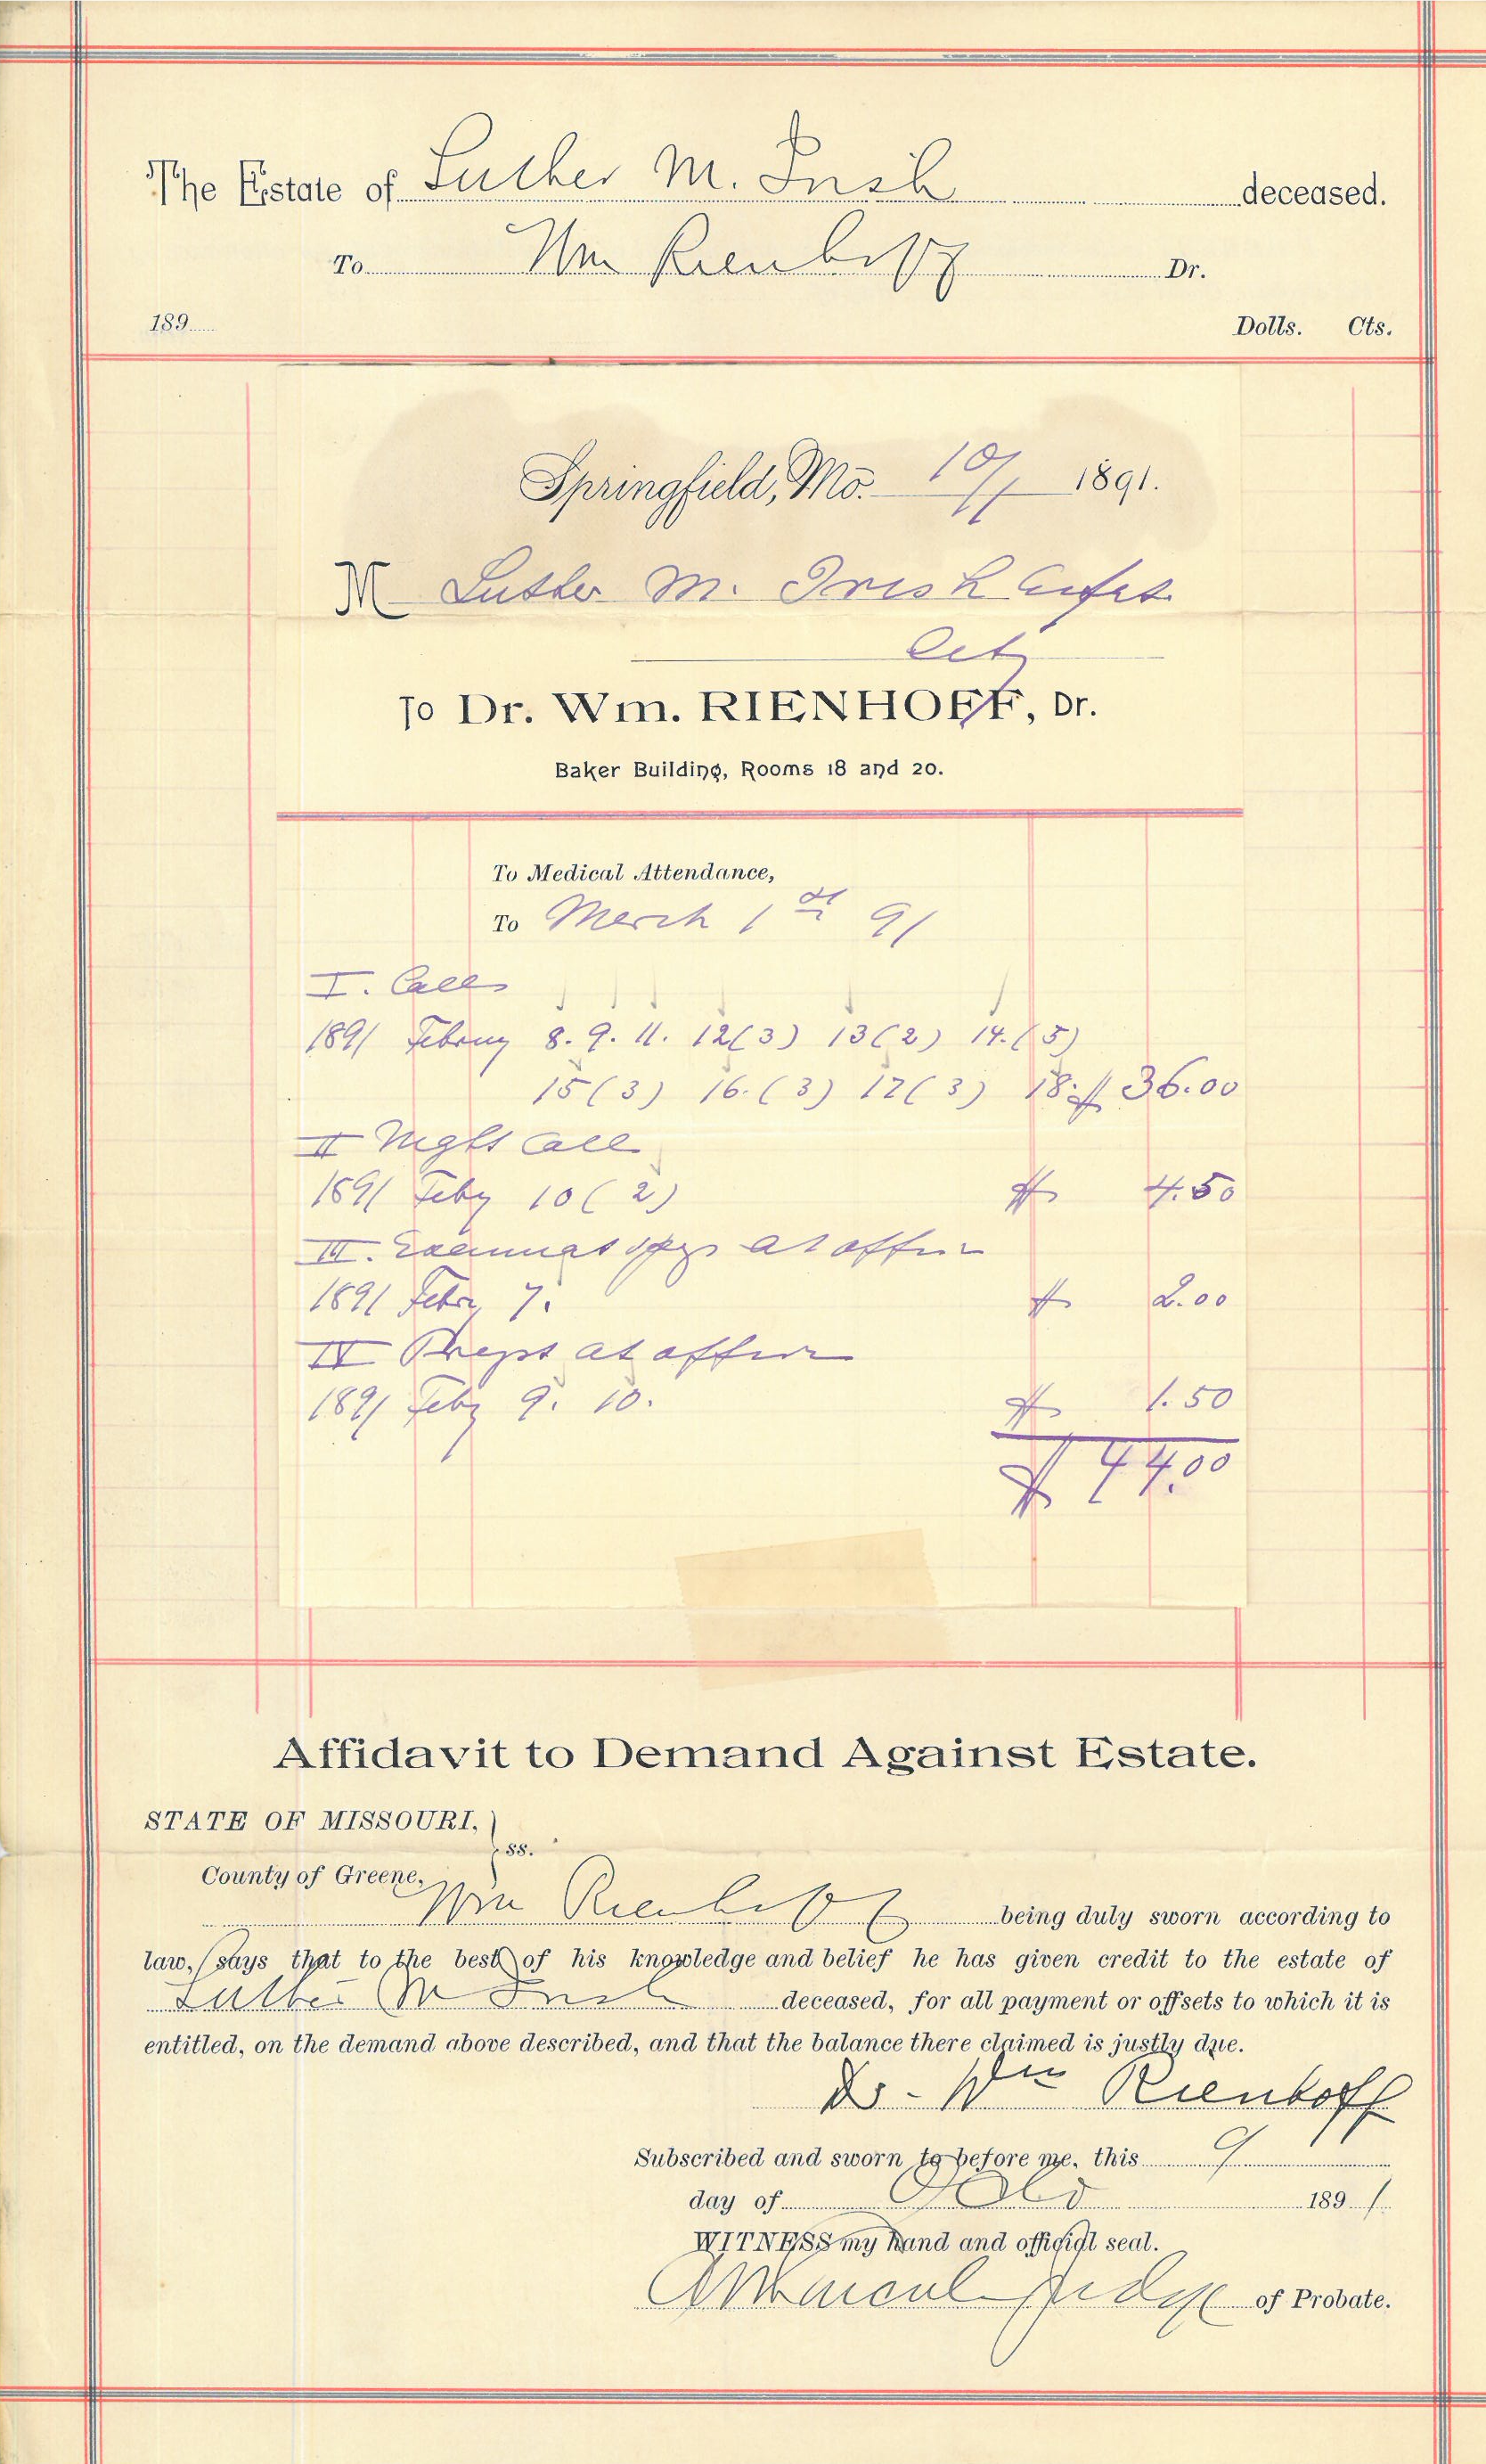 The Estate of Luther M. Irish deceased.
To Wm Rienhoff Dr.
189 Dolls. Cts.
Springfield, Mo. 10/1 1891.
M Luther M. Irish
City
To Dr. Wm. RIENHOFF, Dr.
Baker Building, Rooms 18 and 20.
To Medical Attendance,
To March 1st 91
I. Calls
1891 Februy 8. 9. 11. 12(3) 13(2) 14.(5)
15(3) 16.(3) 17(3) 18. $ 36.00
II Night Call
1891 Feby 10 (2) $ 4.50
III. at office
1891 Febr 7. $ 2.00
IV at office
1891 Feby 9. 10. $ 1.50
$ 44.00
Affidavit to Demand Against Estate.
STATE OF MISSOURI, } ss.
County of Greene,
Wm Rienhoff being duly sworn according to
law, says that to the best of his knowledge and belief he has given credit to the estate of
Luther M Irish deceased, for all payment or offsets to which it is
entitled, on the demand above described, and that the balance there claimed is justly due.
Dr. Wm Rienhoff
Subscribed and sworn to before me, this 9
day of 1891
WITNESS my hand and official seal.
Judge of Probate.